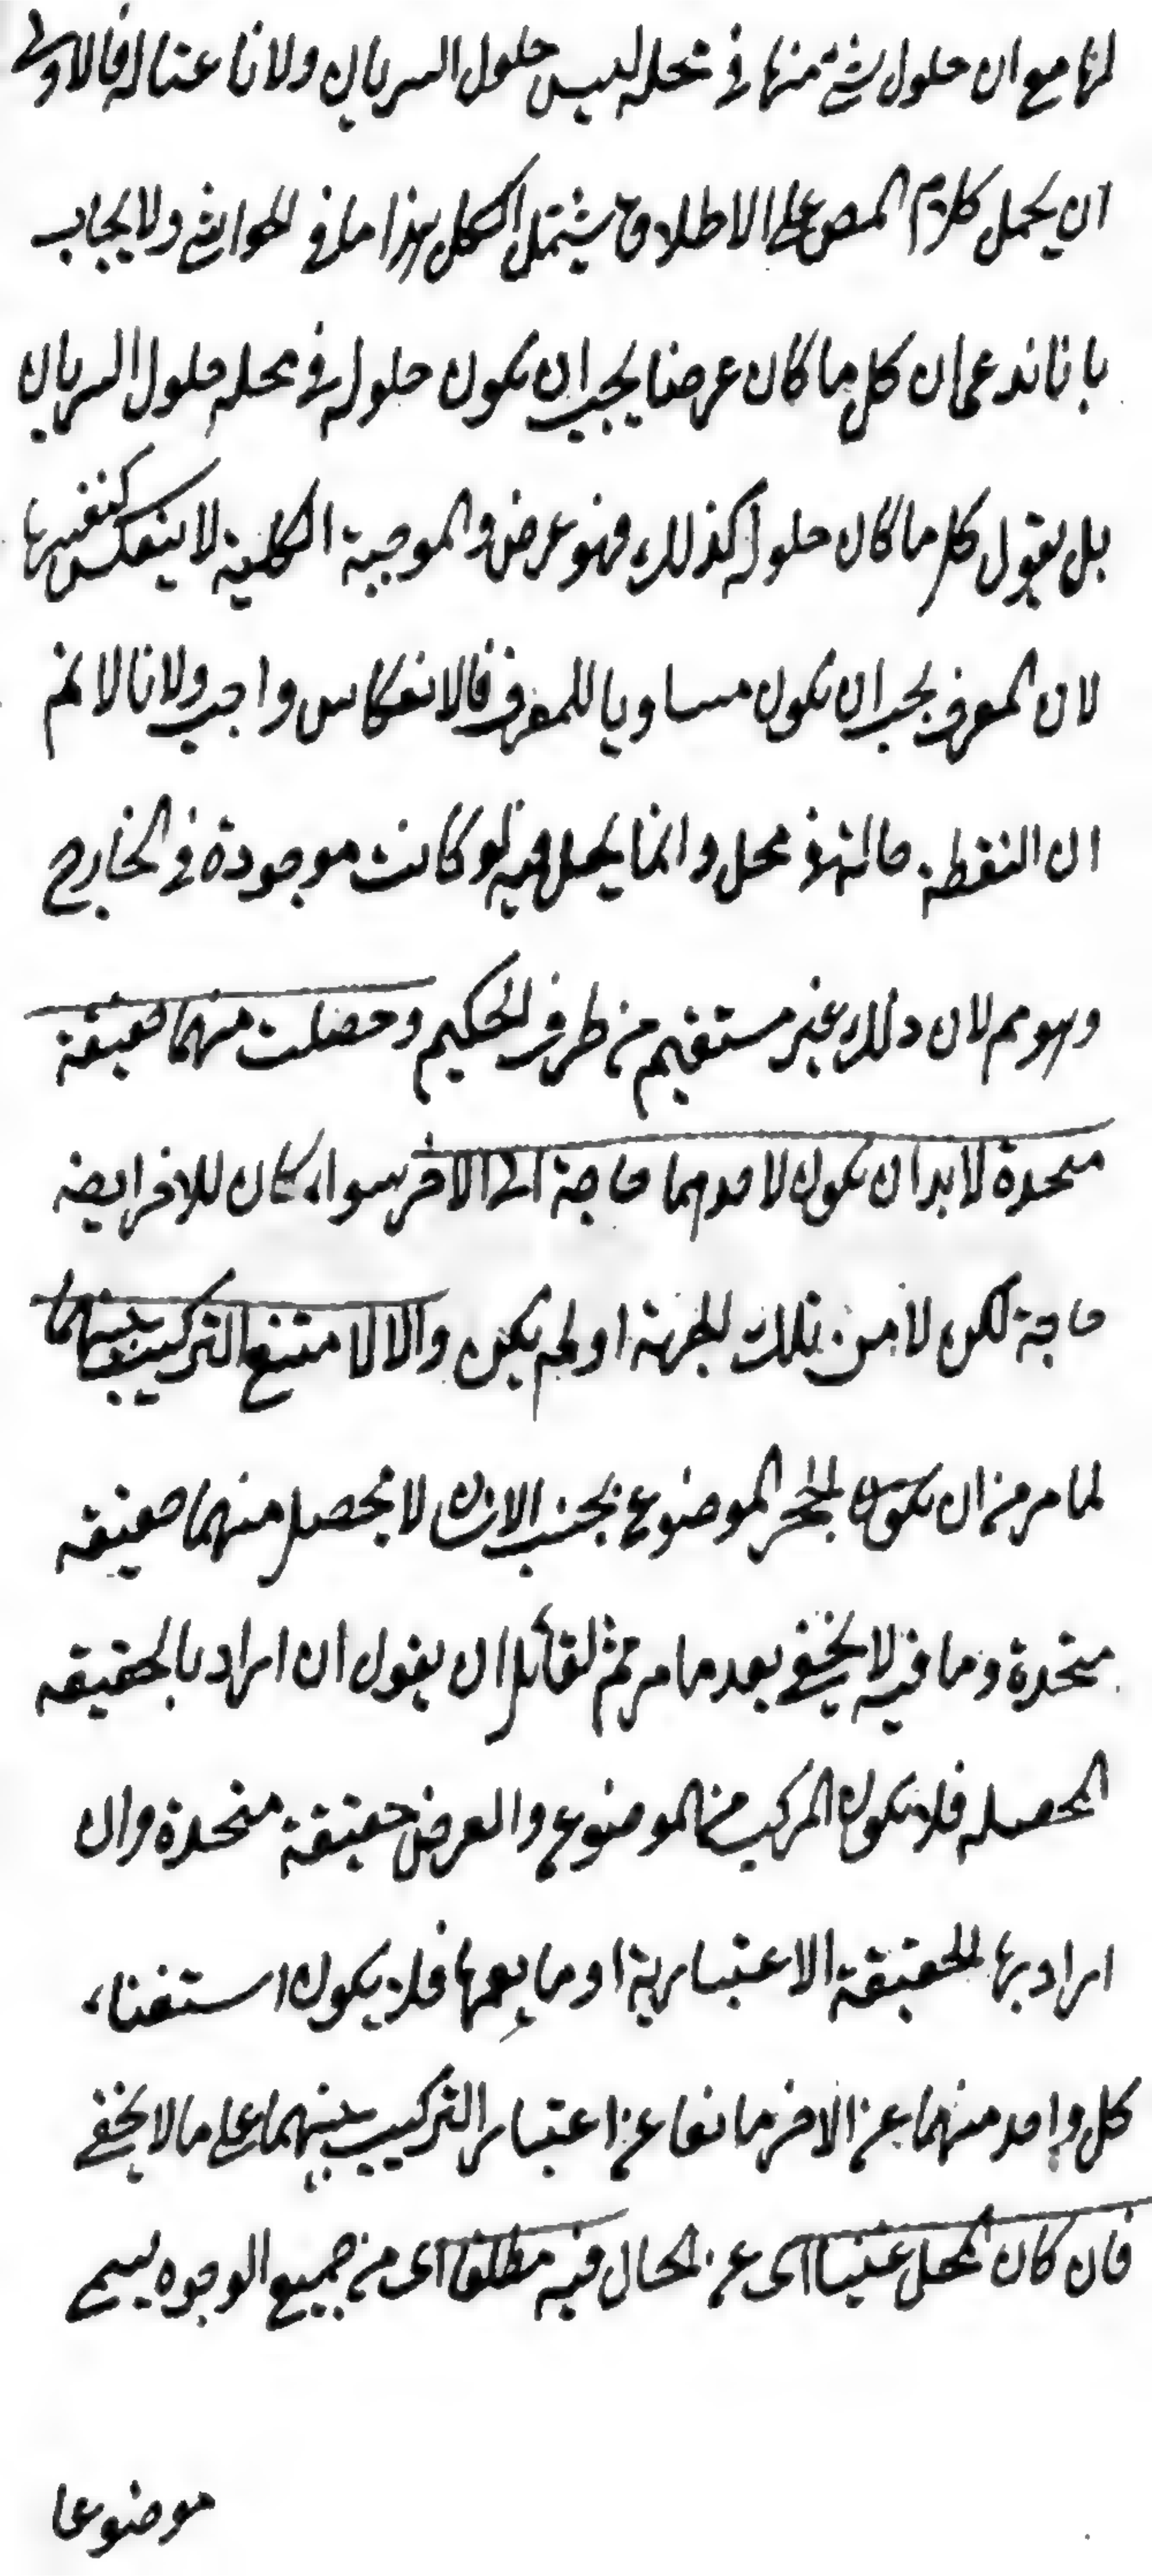 لها مع ان حلول شئ منها في محله ليس حلول السريان ولانا عتاله فالاولى
ان يحمل كلام المص على الاطلاق ح يشتمل الكل هذا ما في الحواشي ولا يجاب
بانا ندعى ان كل ما كان عرضا يجب ان يكون حلوله في محله حلول السريان
بل يقول كل ما كان حلوله كذلك فهو عرض والموجبة الكلية لا ينعكس كنفسها
لان المعرف يجب ان يكون مساويا للمعرف فالانعكاس واجب ولانا لا نم
ان النقطة حالة في محل وانما يحل فيه لو كانت موجودة في الخارج
وهو مم لان ذلك غير مستقيم من طرف الحكيم وحصلت منهما حقيقة
متحدة لا بد ان يكون لاحدهما حاجة الى الاخر سواء كان للاخر ايضا
حاجة لكن لا من تلك الجهة او لم يكن والا لامتنع التركيب بينهما
لما مر من ان يكون الحجر الموضوع بجنب الانسان لا يحصل منهما حقيقة
متحدة وما فيه لا يخفى بعد ما مر ثم لقائل ان يقول ان اراد بالحقيقه
المحصله فلا يكون المركب من الموضوع والعرض حقيقة متحدة وان
اراد بها الحقيقة الاعتبارية او ما يعمها فلا يكون استغناء
كل واحد منهما عن الاخر مانعا عن اعتبار التركيب بينهما على ما لا يخفى
فان كان المحل غنيا اى عن الحال فيه مطلقا اى من جميع الوجوه يسمى
موضوعا